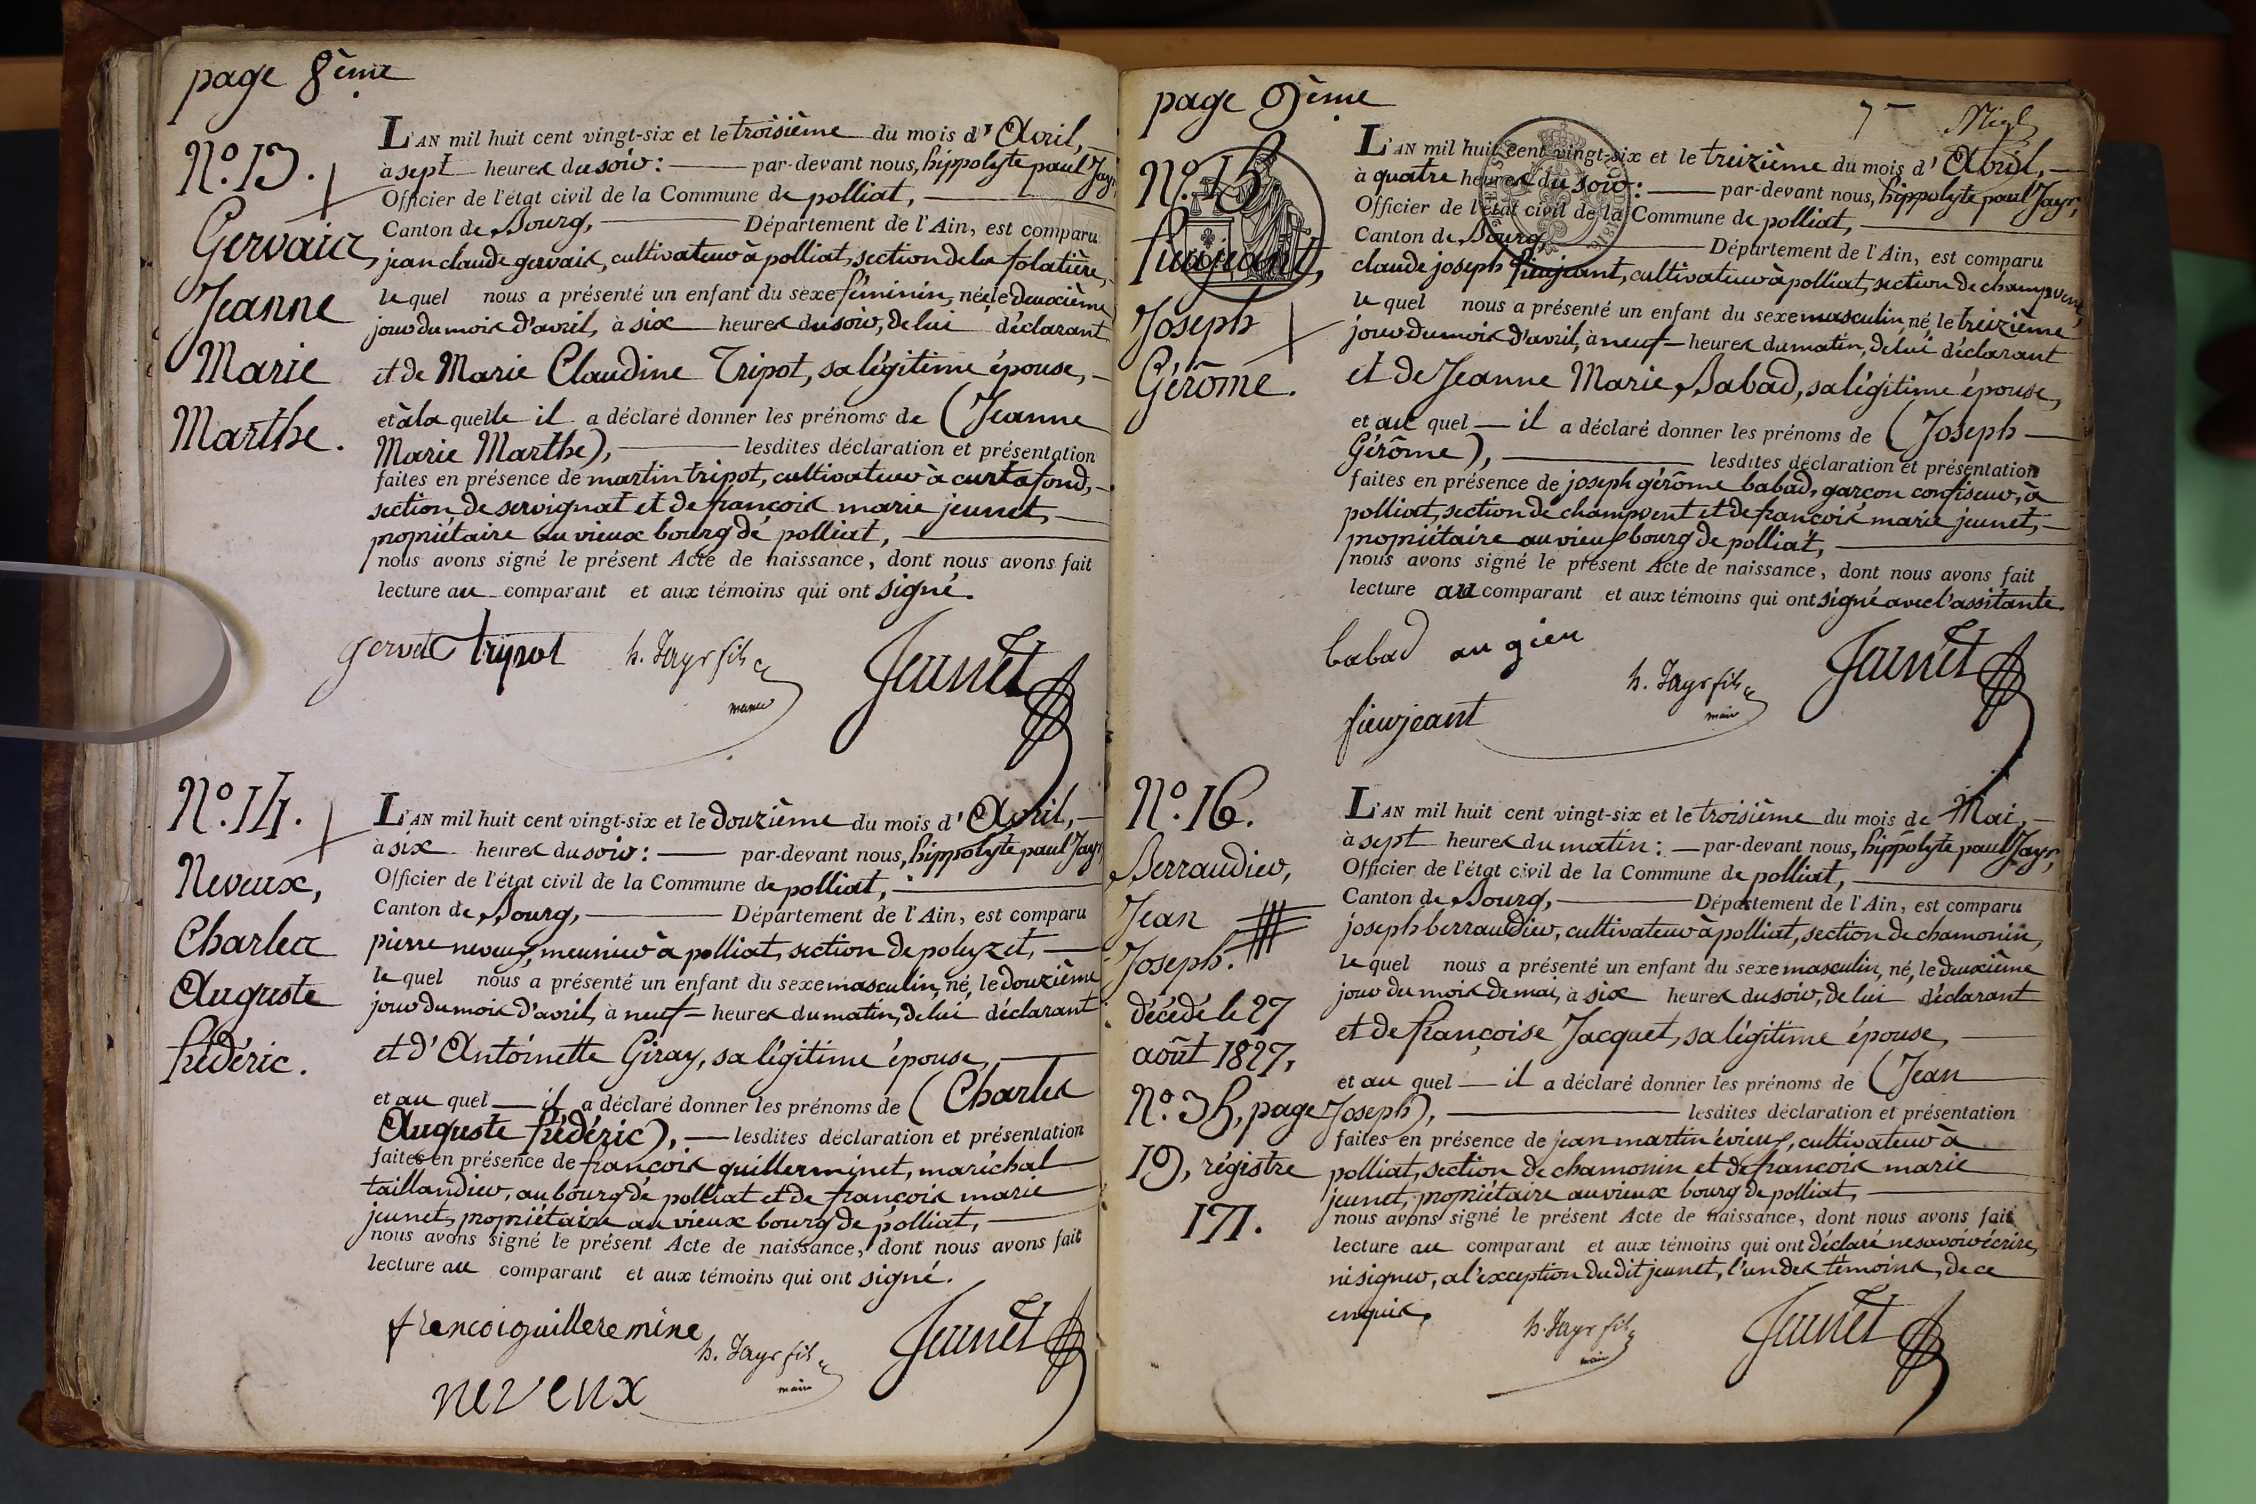 page 8ème
N.º 13.
Gervais,
Jeanne
Marie
Marthe.
L'AN mil huit cent vingt-six et le troisième du mois d' Avril,
à sept heures du soir : par-devant nous, hippolyte paul Jayr
Officier de l'état civil de la Commune de polliat,
Canton de Bourg, Département de l'Ain, est comparu
jean claude gervais, cultivateur à polliat, section de la folatière,
le quel nous a présenté un enfant du sexe féminin, née, le deuxième
jour du mois d'avril, à six heures du soir, de lui déclarant
et de Marie Claudine Tripot, sa légitime épouse,
et à la quelle il a déclaré donner les prénoms de (Jeanne
Marie Marthe), lesdites déclaration et présentation
faites en présence de martin tripot, cultivateur à curtafond,
section de servignat et de françois marie jeunet,
propriétaire au vieux bourg de polliat,
nous avons signé le présent Acte de naissance, dont nous avons fait
lecture au comparant et aux témoins qui ont signé.
tripot h. Jayr fils Jeunet
N.º 14.
Neveux,
Charles
Auguste
frédéric.
L'AN mil huit cent vingt-six et le douzième du mois d' Avril,
à six heures du soir : par-devant nous, hippolyte paul Jayr
Officier de l'état civil de la Commune de polliat,
Canton de Bourg, Département de l'Ain, est comparu
pierre neveux, meunier à polliat, section de poluyzet,
le quel nous a présenté un enfant du sexe masculin, né, le douzième
jour du mois d'avril, à neuf heures du matin, de lui déclarant
et d'Antoinette Giray, sa légitime épouse,
et au quel il a déclaré donner les prénoms de (Charles
Auguste frédéric), lesdites déclaration et présentation
faites en présence de françois guillerminet, maréchal
taillandier, au bourg de polliat et de françois marie
jeunet, propriétaire au vieux bourg de polliat,
nous avons signé le présent Acte de naissance, dont nous avons fait
lecture au comparant et aux témoins qui ont signé.
francoiguilleremine h. Jayr fils Jeunet
maire
neveux
page 9ème
N.º 15.
fieujeant,
Joseph
Gérôme.
L'AN mil huit cent vingt-six et le treizième du mois d' Avril,
à quatre heures du soir : par-devant nous, hippolyte paul Jayr,
Officier de l'état civil de la Commune de polliat,
Canton de Bourg, Département de l'Ain, est comparu
claude joseph fieujeant, cultivateur à polliat, section de champvent,
le quel nous a présenté un enfant du sexe masculin, né, le treizième
jour du mois d'avril, à neuf heures du matin, de lui déclarant
et de Jeanne Marie Babad, sa légitime épouse,
et au quel il a déclaré donner les prénoms de (Joseph
Gérôme), lesdites déclaration et présentation
faites en présence de joseph gérôme babad, garçon confiseur, à
polliat, section de champvent et de françois marie jeunet,
propriétaire au vieux bourg de polliat,
nous avons signé le présent Acte de naissance, dont nous avons fait
lecture au comparant et aux témoins qui ont signé avec l'assitante.
babad augieu h. Jayr fils Jeunet
maire
fieujeant
N.º 16.
Berraudier,
Jean
Joseph.
décédé le 27
août 1827,
N.º 35, page
19, régistre
171.
L'AN mil huit cent vingt-six et le troisième du mois de Mai,
à sept heures du matin : par-devant nous, hippolyte paul Jayr,
Officier de l'état civil de la Commune de polliat,
Canton de Bourg, Département de l'Ain, est comparu
joseph berraudier, cultivateur à polliat, section de chamonin,
le quel nous a présenté un enfant du sexe masculin, né, le deuxième
jour du mois de mai, à six heures du soir, de lui déclarant
et de françoise Jacquet, sa légitime épouse,
et au quel il a déclaré donner les prénoms de (Jean
Joseph), lesdites déclaration et présentation
faites en présence de jean martin évieux, cultivateur à
polliat, section de chamonin et de françois marie
jeunet, propriétaire au vieux bourg de polliat,
nous avons signé le présent Acte de naissance, dont nous avons fait
lecture au comparant et aux témoins qui ont déclaré ne savoir écrire,
ni signer, à l'exception du dit jeunet, l'un des témoins, de ce
enquis.
h. Jayr fils Jeunet
maire